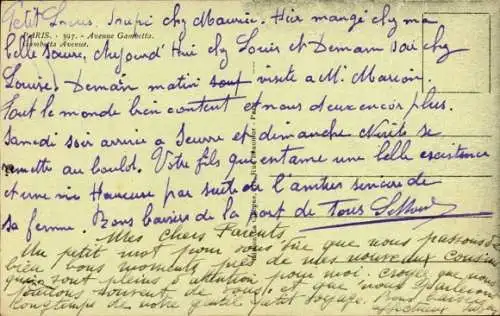 Petit Louis. Soupé chez Maurice. Hier mangé chez ma
PARIS. - 397. - Avenue Gambetta.
Gambetta Avenue.
belle sœur, Aujourd'hui chez Louis et Demain soir chez
Louise. Demain matin visite a M. Marion.
Tout le monde bien content et nous deux encor plus.
Samedi soir arrivée a et dimanche se
remettre au boulot. Votre fils qui entame une belle existence
et une vie Heureuse par suite de l'amour sincère de
sa femme. Bons baisers de la part de Tous
Mes chers Parents
Un petit mot pour vous dire que nous passons de
bien bons moments près de mes nouveaux cousins
qui sont pleins d'attention pour moi. Croyez que nous
souvent de vous et que nous parlerons
longtemps de votre gentil petit voyage. Bons baisers